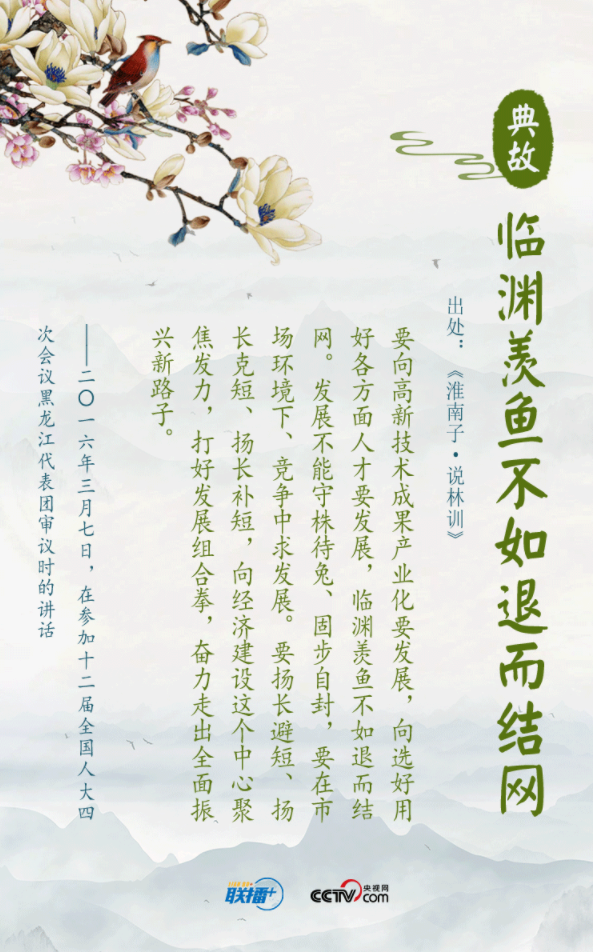 典故
临渊羡鱼不如退而结网
出处：《淮南子·说林训》
要向高新技术成果产业化要发展，向选好用
好各方面人才要发展，临渊羡鱼不如退而结
网。发展不能守株待兔、固步自封，要在市
场环境下、竞争中求发展。要扬长避短、扬
长克短、扬长补短，向经济建设这个中心聚
焦发力，打好发展组合拳，奋力走出全面振
兴新路子。
——二〇一六年三月七日，在参加十二届全国人大四
次会议黑龙江代表团审议时的讲话
联播+
CCTV.com 央视网